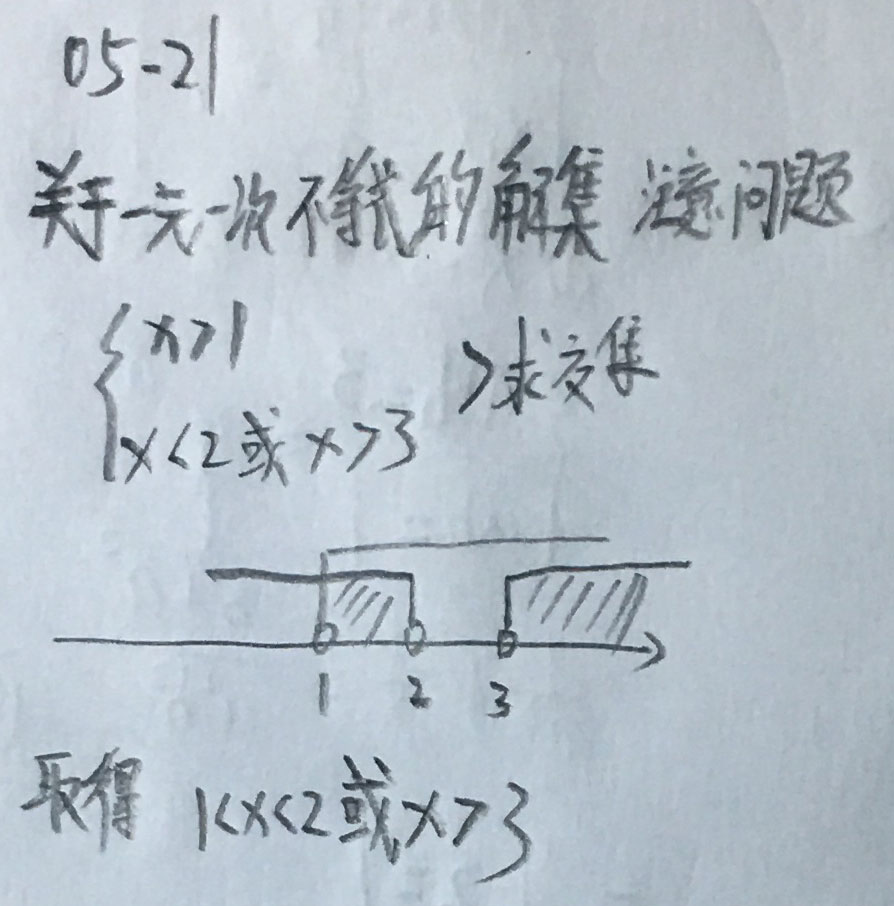 05-21
关于一元一次不等式的解集 注意问题
{ x>1
>求交集
x<2或x>3
1 2 3
取得 1<x<2或x>3